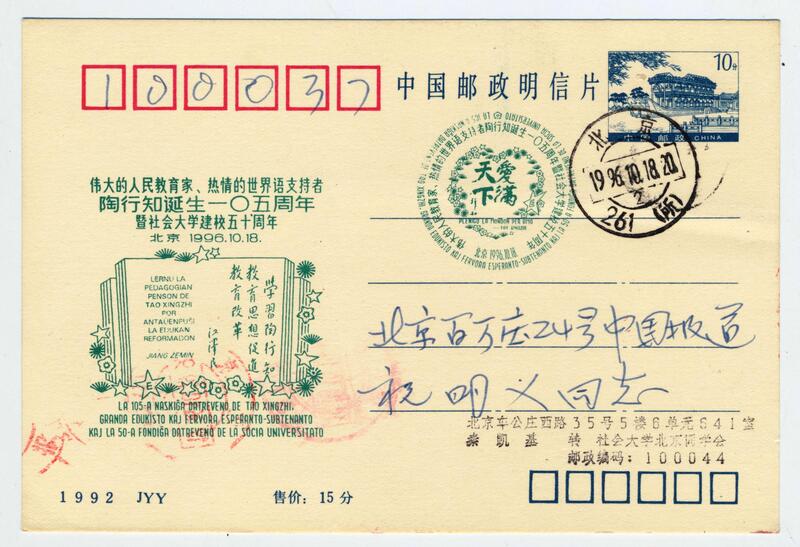 100037
中国邮政明信片
10分
中国邮政 CHINA
北京
1996.10.18.20
261 (所)
伟大的人民教育家、热情的世界语支持者陶行知诞生一〇五周年暨社会大学建校五十周年
愛滿
天下
PLENIGO LA MONDON PER AMO
北京 1996.10.18
伟大的人民教育家、热情的世界语支持者
陶行知诞生一〇五周年
暨社会大学建校五十周年
北京 1996.10.18.
LERNU LA
PEDAGOGIAN
PENSON DE
TAO XINGZHI
POR
ANTAŬENPUŜI
LA EDUKAN
REFORMADON
JIANG ZEMIN
學習陶行知
教育思想促進
教育改革
江泽民
LA 105-A NASKIĜA DATREVENO DE TAO XINGZHI,
GRANDA EDUKISTO KAJ FERVORA ESPERANTO-SUBTENANTO
KAJ LA 50-A FONDIĜA DATREVENO DE LA SOCIA UNIVERSITATO
北京百万庄24号中国报道
祝明义同志
北京车公庄西路35号5楼6单元641室
秦凯基 转 社会大学北京同学会
邮政编码:100044
1992 JYY
售价:15分